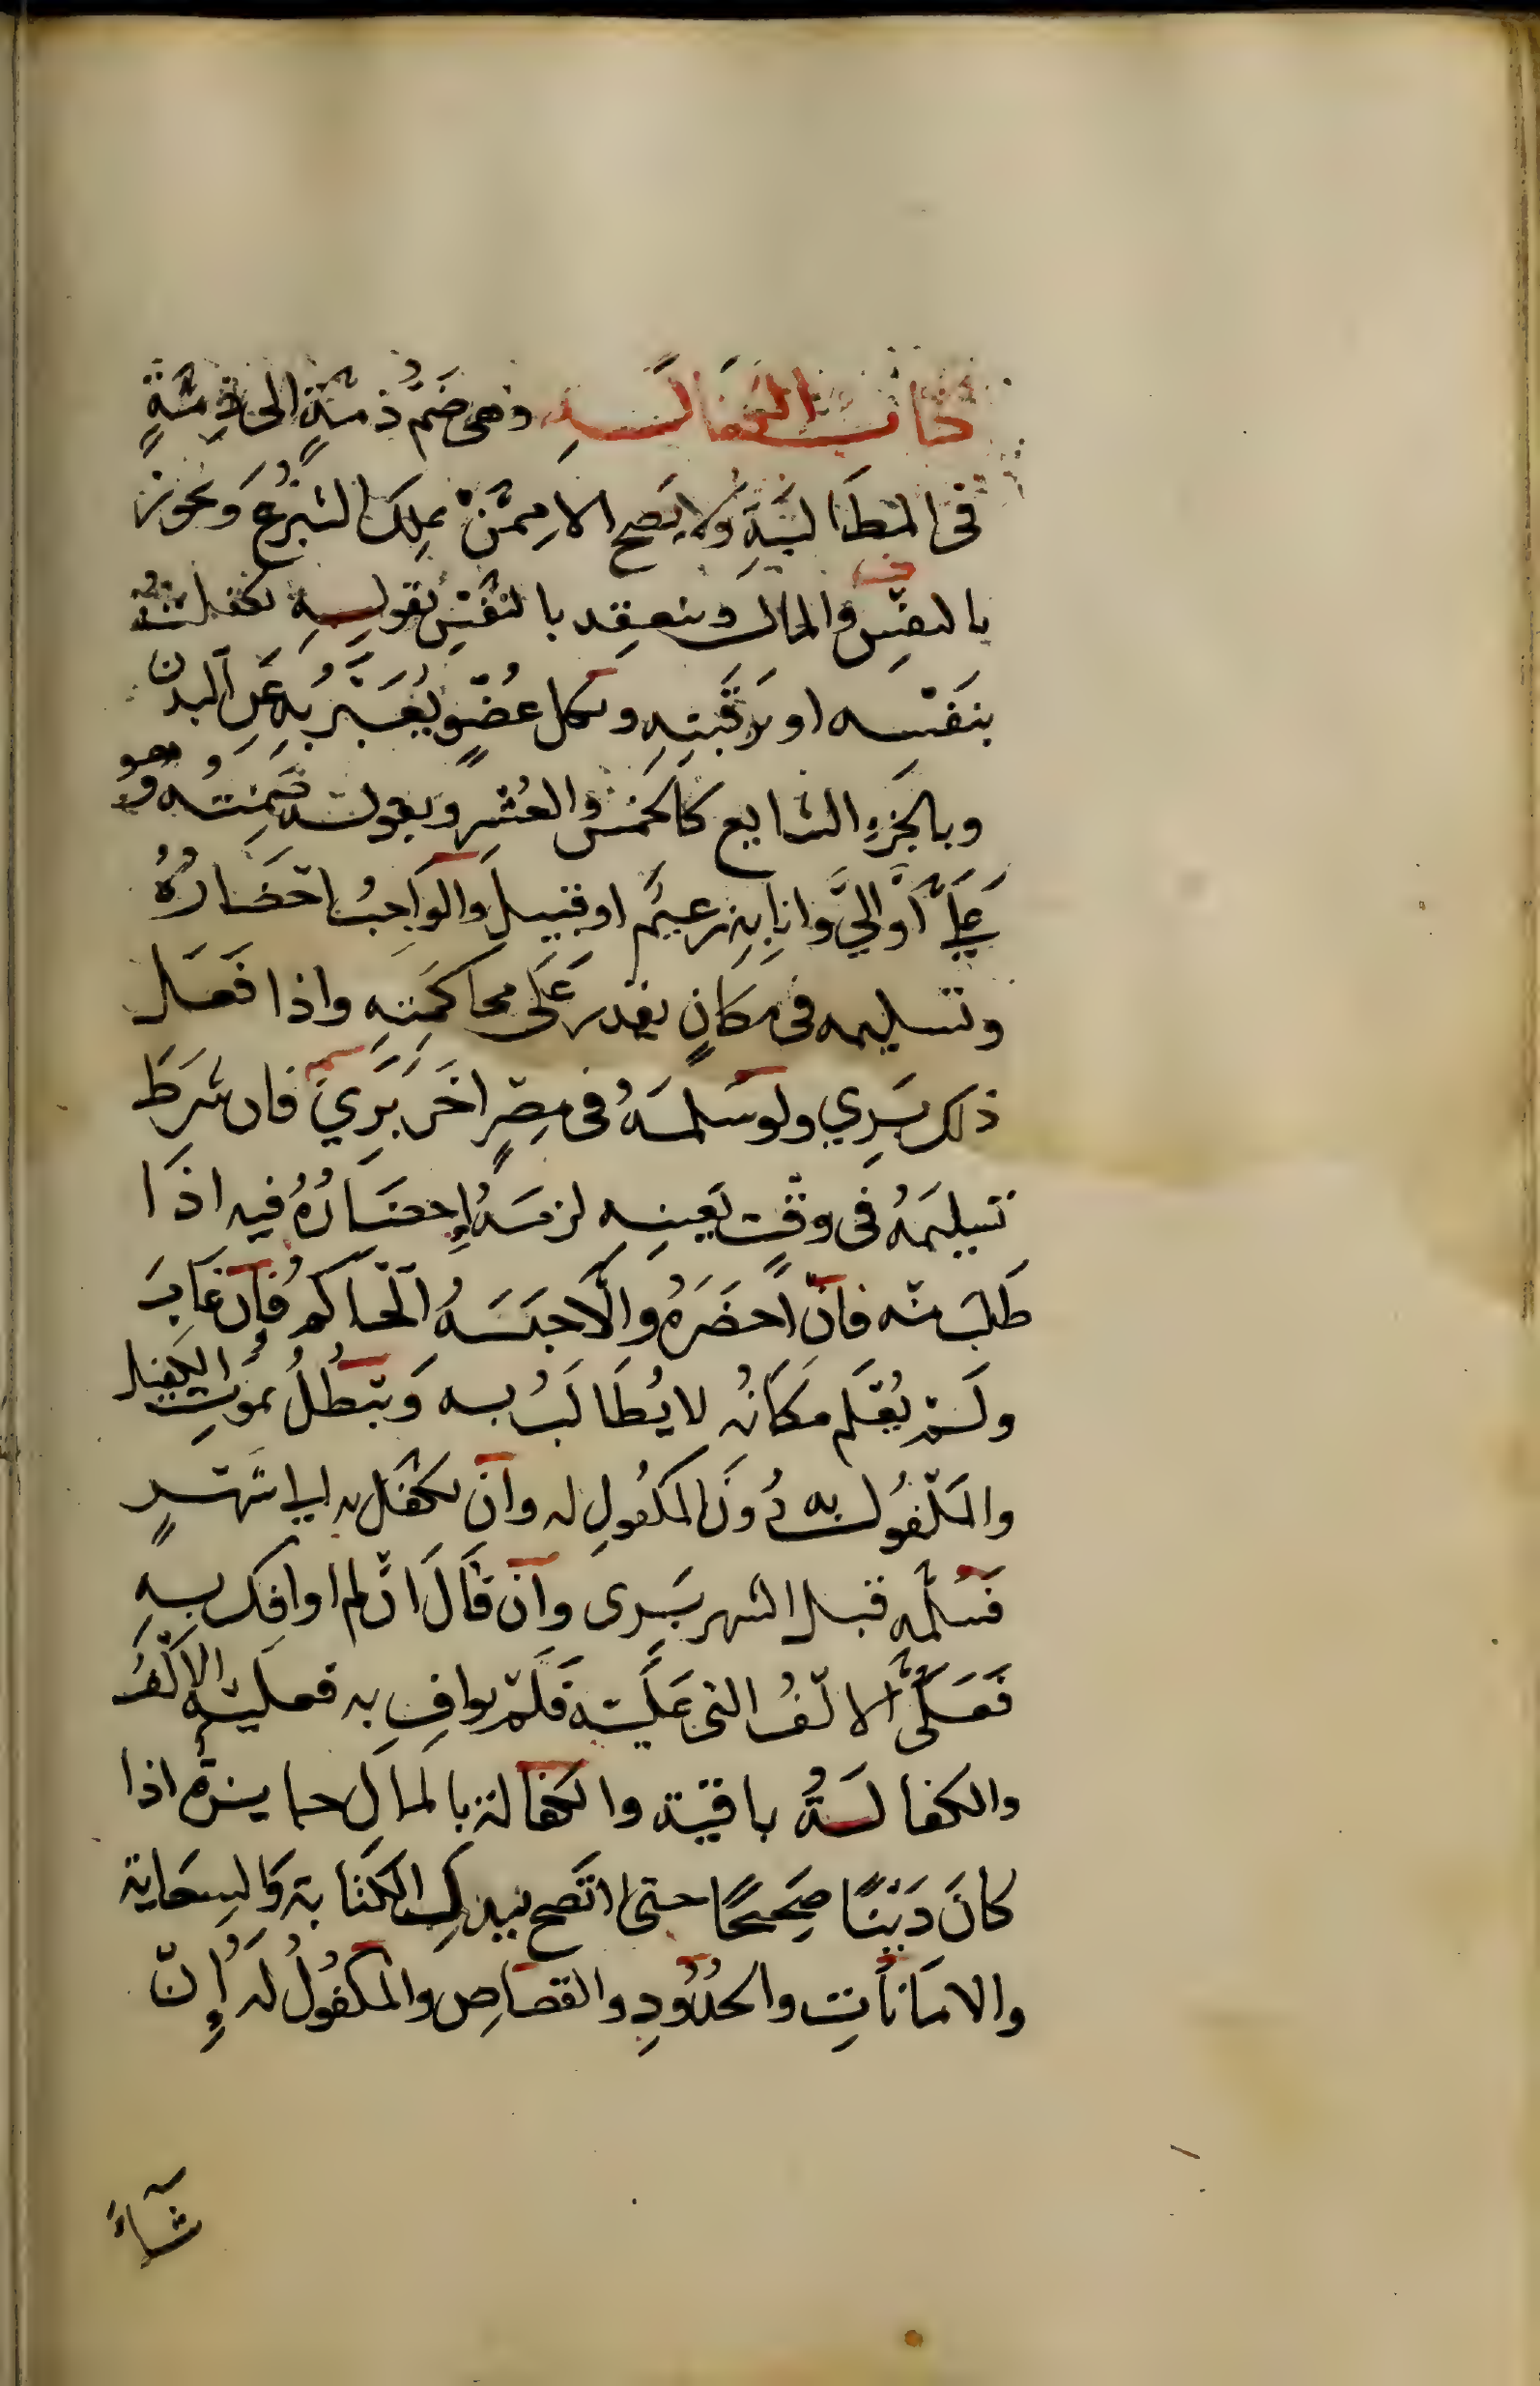 كتاب الكفالة وهي ضَمُّ ذمّةٍ الى ذِمّةٍ
في المطَالبَةِ ولا يَصح الا مِمّنْ يملِك التبرُّعَ وَيجوز
بالنفسِ والمال وينعقِد بالنفْسِ بقولِهِ تكفلتُ
بنَفْسِه او برَقَبتِهِ وبكل عُضْوٍ يُعَبَّرُ بِهِ عَنِ البدن
وبالجُزءِ الشايع كالخُمْس والعُشْرِ وبقوله ضَمِنتُه وهو
عَلَيَّ أوْ إليَّ وانا بِه زعيمٌ او قبيل والوَاجِبُ احْضَارُهُ
وتسليمه في مكانٍ يقدر عَلَى محاكَمَتِهِ واذا فَعَل
ذلك بَرِي ولو سَلّمَهُ في مِصْرٍ اخَرَ بَرِيَ فان شَرَط
تسليمَهُ في وقْتٍ بعَينِهِ لزمَهُ إِحضَارُهُ فيه اذَا
طَلبَ منْه فانْ أحضَرَهُ والّا حبَسَهُ الْحاكمُ فانْ غَابَ
ولَمْ يُعْلَم مكَانُه لا يُطَالَبُ به وَتبْطُلُ بموْتِ الكفيل
والمكْفُولِ به دُونَ المكفُولِ له وانْ تكفّل به إلى شَهْرٍ
فَسَلّمه قبل الشهر بَرِى وانْ قَالَ انْ لم اوافِك بهِ
فَعَلَيَّ الالْفُ التي عَلَيْه فَلَمْ يوافِ به فعليْهِ الالْفُ
والكفالَةُ باقيَة والكفالة بالمالِ جايزةٌ اذا
كانَ دَيْنًا صَحِيحًا حتى لا تصَح ببدلِ الكتابة وَالسِعَاية
والامَانَاتِ والحُدُودِ والقصَاصِ والمكفُولُ لَهُ إِنْ
شآءَ